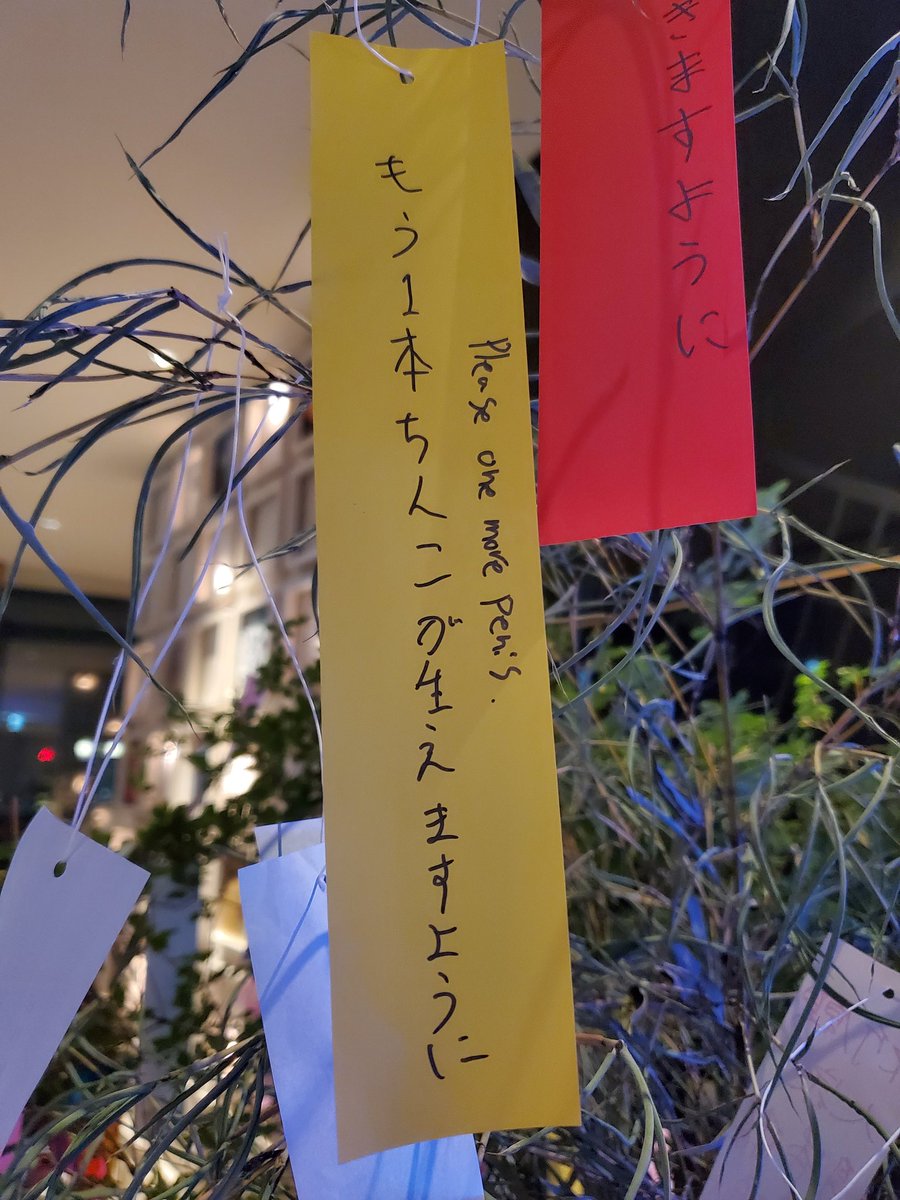 きますように
もう1本ちんこが生えますように
Please one more penis.